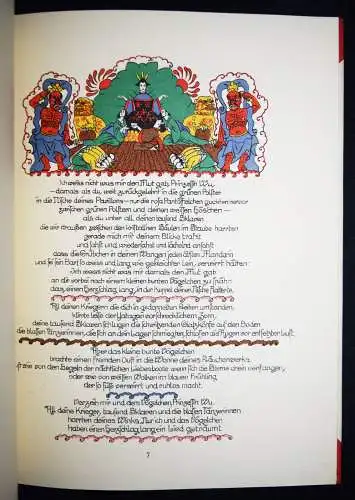 Ich weiss nicht was mir den Mut gab, Prinzessin Wu,
– damals als du, weit zurückgelehnt in die grünen Polster
in die Nische deines Pavillons – nur die rosa Pantöffelchen guckten hervor
zwischen grünen Polstern und deinen weissen Höschen –
als du unter all deinen tausend Sklaren
die wir draußen zwischen den kristallnen Säulen im Staube harrten
gerade mich mit deinem Blicke trafst
und sahst und wiedersahst und lächelnd ansahst
dass die Grübchen in deinen Wangen jeden ältsten Mandarin
und sei sein Bart so weiss und lang wie gebleichter Lein, verwirrt hätten:
Ich weiss nicht was mir damals den Mut gab
an dir vorbei nach einem kleinen bunten Vögelchen zu
dass, einen Herzschlag lang, in der Kuppel deiner Nische flatterte.
All deinen Kriegern die dich in gedoppelten Reihen umstanden,
klirrte leise der Yatagan vor schrecklichem Zorn,
deine tausend Sklaren schlugen die scheitelnden Glatzköpfe auf den Boden
die blassen Tänzerinnen, die sich an dein Lager schmiegten, schlossen die Augen vor entsetzter Lust.
Aber das kleine bunte Vögelchen
brachte einen fremden Duft in die Wonne deines Räucherwerks
von den Segeln der nächtlichen Liebesboote wenn sich die Sterne drein verfangen,
oder wie von weißen Wolken im blauen Frühling
der so süss verwirrt und ruhlos macht.
Verzeih mir und dem Vögelchen, Prinzessin Wu.
All deine Krieger, tausend Sklaren und die blassen Tänzerinnen
harrten deines Winks. Nur ich und das Vögelchen
haben einen Herzschlag lang ein Lied geträumt.
7